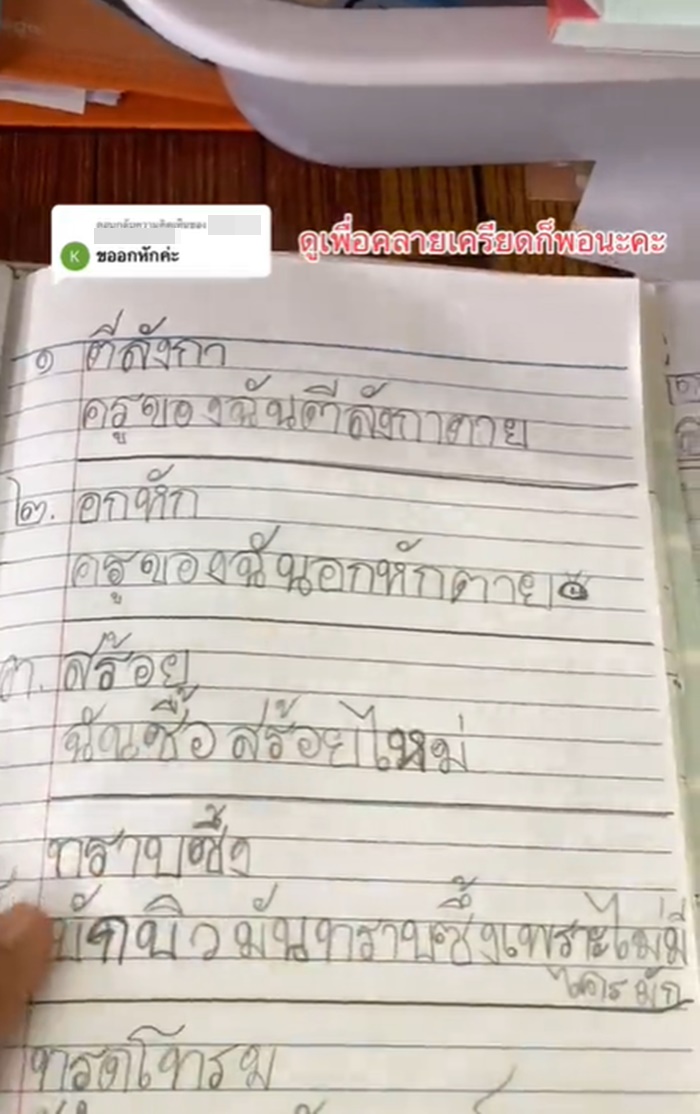 ตอบกลับความคิดเห็นของ
K ขออกหักค่ะ
ดูเพื่อคลายเครียดก็พอนะคะ
๑ ตีลังกา
ครูของฉันตีลังกาตาย
๒. อกหัก
ครูของฉันอกหักตาย
๓. สร้อย
ฉันซื้อสร้อยใหม่
ทราบซึ้ง
บักบิวมันทราบซึ้งเพราะไม่มี
ไคร มัก
ทรุดโทรม